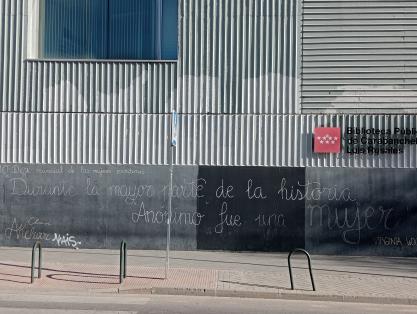 Biblioteca Públ
de Carabanchel
Luis Rosales
mundial de las mujeres escritoras
Durante la mayor parte de la historia
Anónimo fue una mujer
VIRGINIA WO